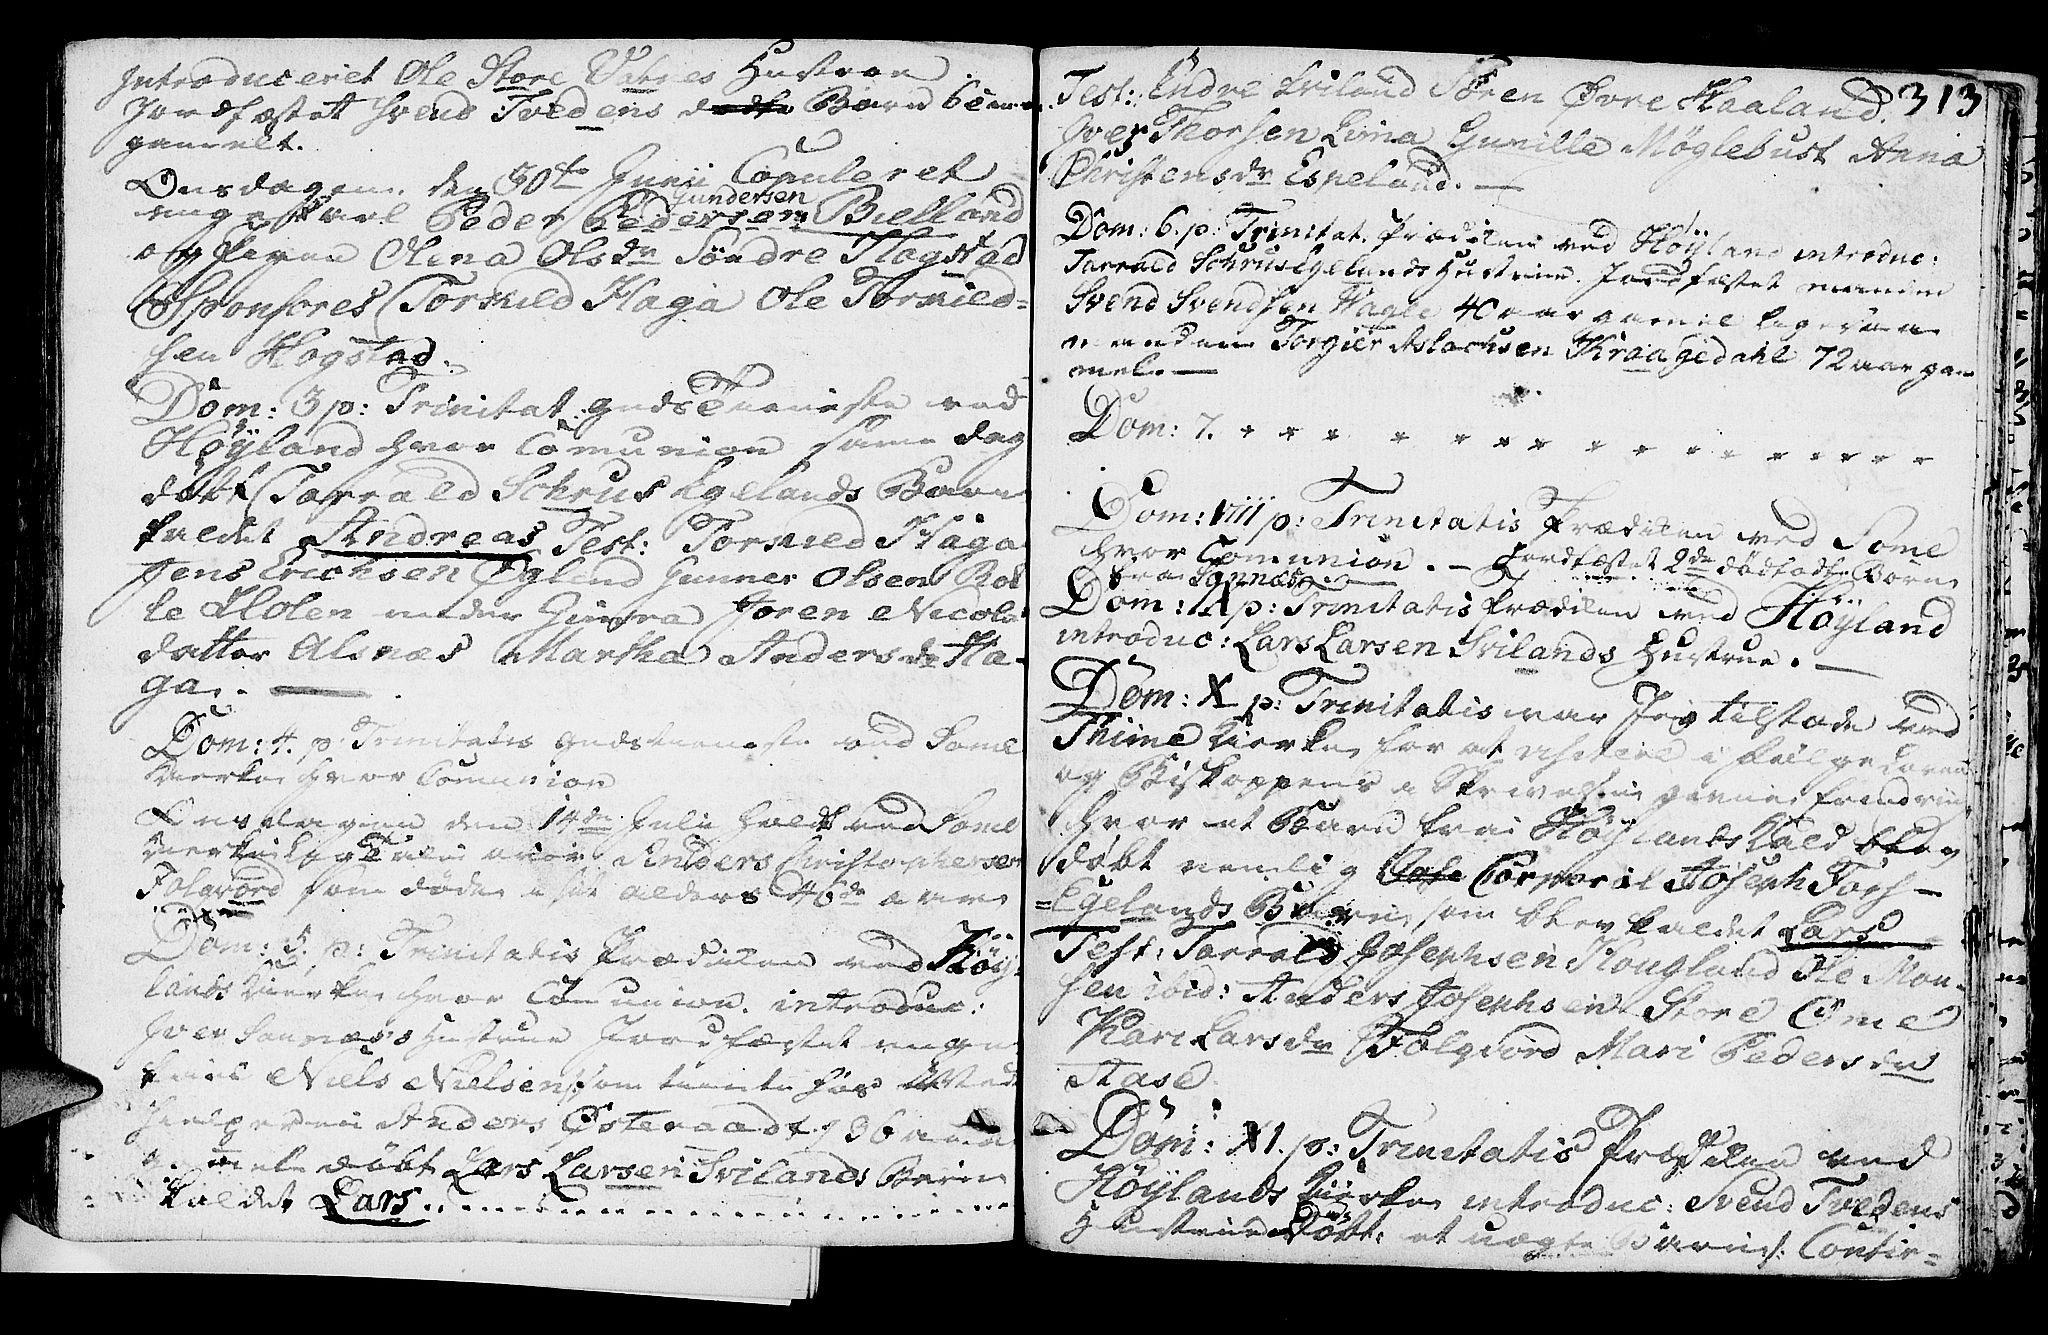 Introduceret Ole Store Vatnes Hustroe.
Jordfæstet Svend Tvedens dødfø Barn 6
gamelt.
Onsdagen den 30te Junii Copuleret
ungekarl Peder Pedersen Gundersen Bielland
og pigen Olena Olsdr Söndre Hogstad
Sponsores Torkild Haga Ole Torkild-
sen Hogstad.
Dom: 3 p: Trinitat: gudsTieneste ved
Höyland hvor Comunion same dag
döbt Tarrald Schrus Egelands Barn
kaldet Andreas Test: Torkild Haga
Jens Erichsen Øglend Gunner Olsen
Holen Joren Nicolai
datter Alsnæs Martha Andersdr Ha-
ga. —
Dom: 4. p. Trinitatis gudstieneste ved Some
kierke hvor Comunion
Onsdagen den 14de Julii holdt ved Some
kierke Ligtale over Anders Christophersen
Folavord som døde i sit alders 46de aar
Dom: 5. p: Trinitatis Prædiken ved Höy-
lands kierke hvor Comunion. introduc:
Iver Sannes's Hustrue Jordfæstet unge
karl Niels Nielsen som tiente hos
Anders Østeraadt 36 aar
gamel døbt Lars Larsen Svilands Barn
kaldet Lars.
313
Test: Endre Sviland Sören Øvre Haaland
Iver Thorsen Lima Gunille Møglebust Anna
Christensdr Espeland. —
Dom: 6. p: Trinitat. Prædiken ved Höyland introduc:
Tarrald Schrus Egelands Hustrue. Jordfæstet manden
Svend Svendsen Hagle 40 aar gamel ligesaa
manden Torgier Aslachsen Kraagedahl 72 aar ga-
mel. —
Dom: 7.
Dom: VIII p: Trinitatis Prædiken ved Some
hvor Comunion. — Jordfæstet 2de dødfødte Børn
fra Sannes.
Dom: IX p: Trinitatis Prædiken ved Höyland
introduc: Lars Larsen Svilands Hustrue. —
Dom: X p: Trinitatis var Jeg tilstæde ved
Thime kierke for at i følge
og Biskoppens
hvor et Barn fra Höylands Kald blev
døbt nemlig Corporal Joseph Tors-
Egelands Barn, som blev kaldet Lars
Test: Tarrald Josephsen Hougland Ole Mon-
sen ibid: Anders Josephsen Store Ome
Kari Larsdr Folqvord Mari Pedersdr
Stase
Dom: XI. p: Trinitatis Prædiken ved
Höylands kierke introduc: Svend Tvedens
Hustrue Døbt: et uægte Barn /: Contir=